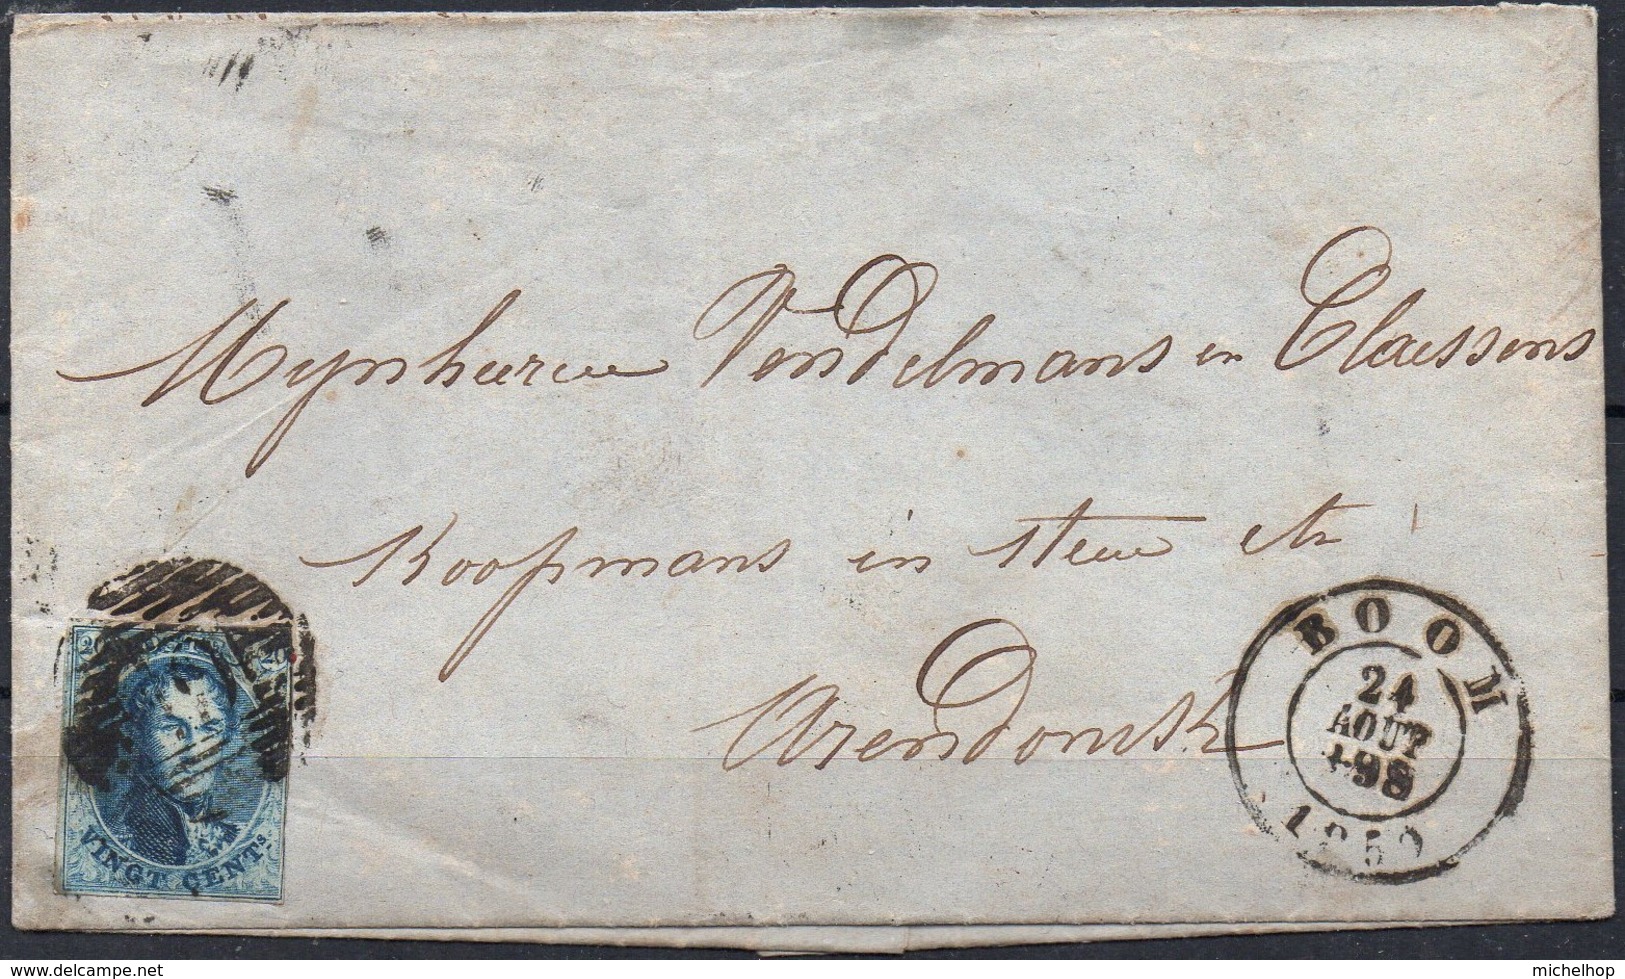 Mynheeren Vendelmans en Claessens
Koopmans in steen etc
Arendonck
20 20
VINGT CENTs.
BOOM
24
AOUT
1850
www.delcampe.net
michelhop